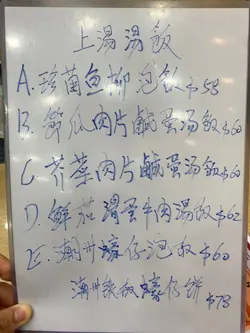 上湯湯飯
A. 珍菌魚柳泡飯$58
B. 節瓜肉片鹹蛋湯飯$60
C. 芥菜肉片鹹蛋湯飯$60
D. 鮮茄滑蛋牛肉湯飯$62
E. 潮州蠔仔泡飯$60
潮州煎蠔仔餅
$78